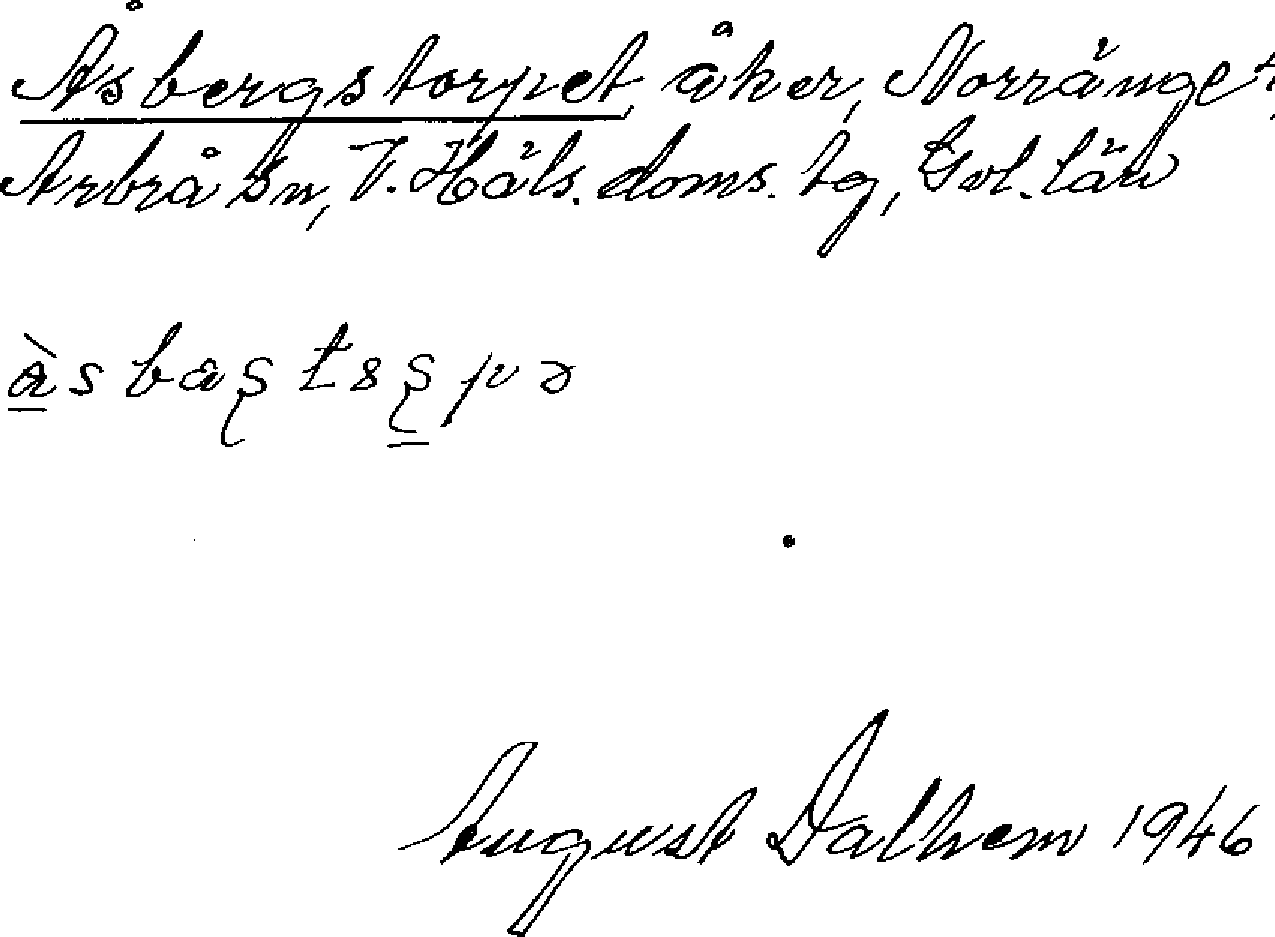 Åsbergstorpet, åker, Norränget,
Arbrå sn, V. Häls. doms. tg, Gvl. län
August Dalhem 1946